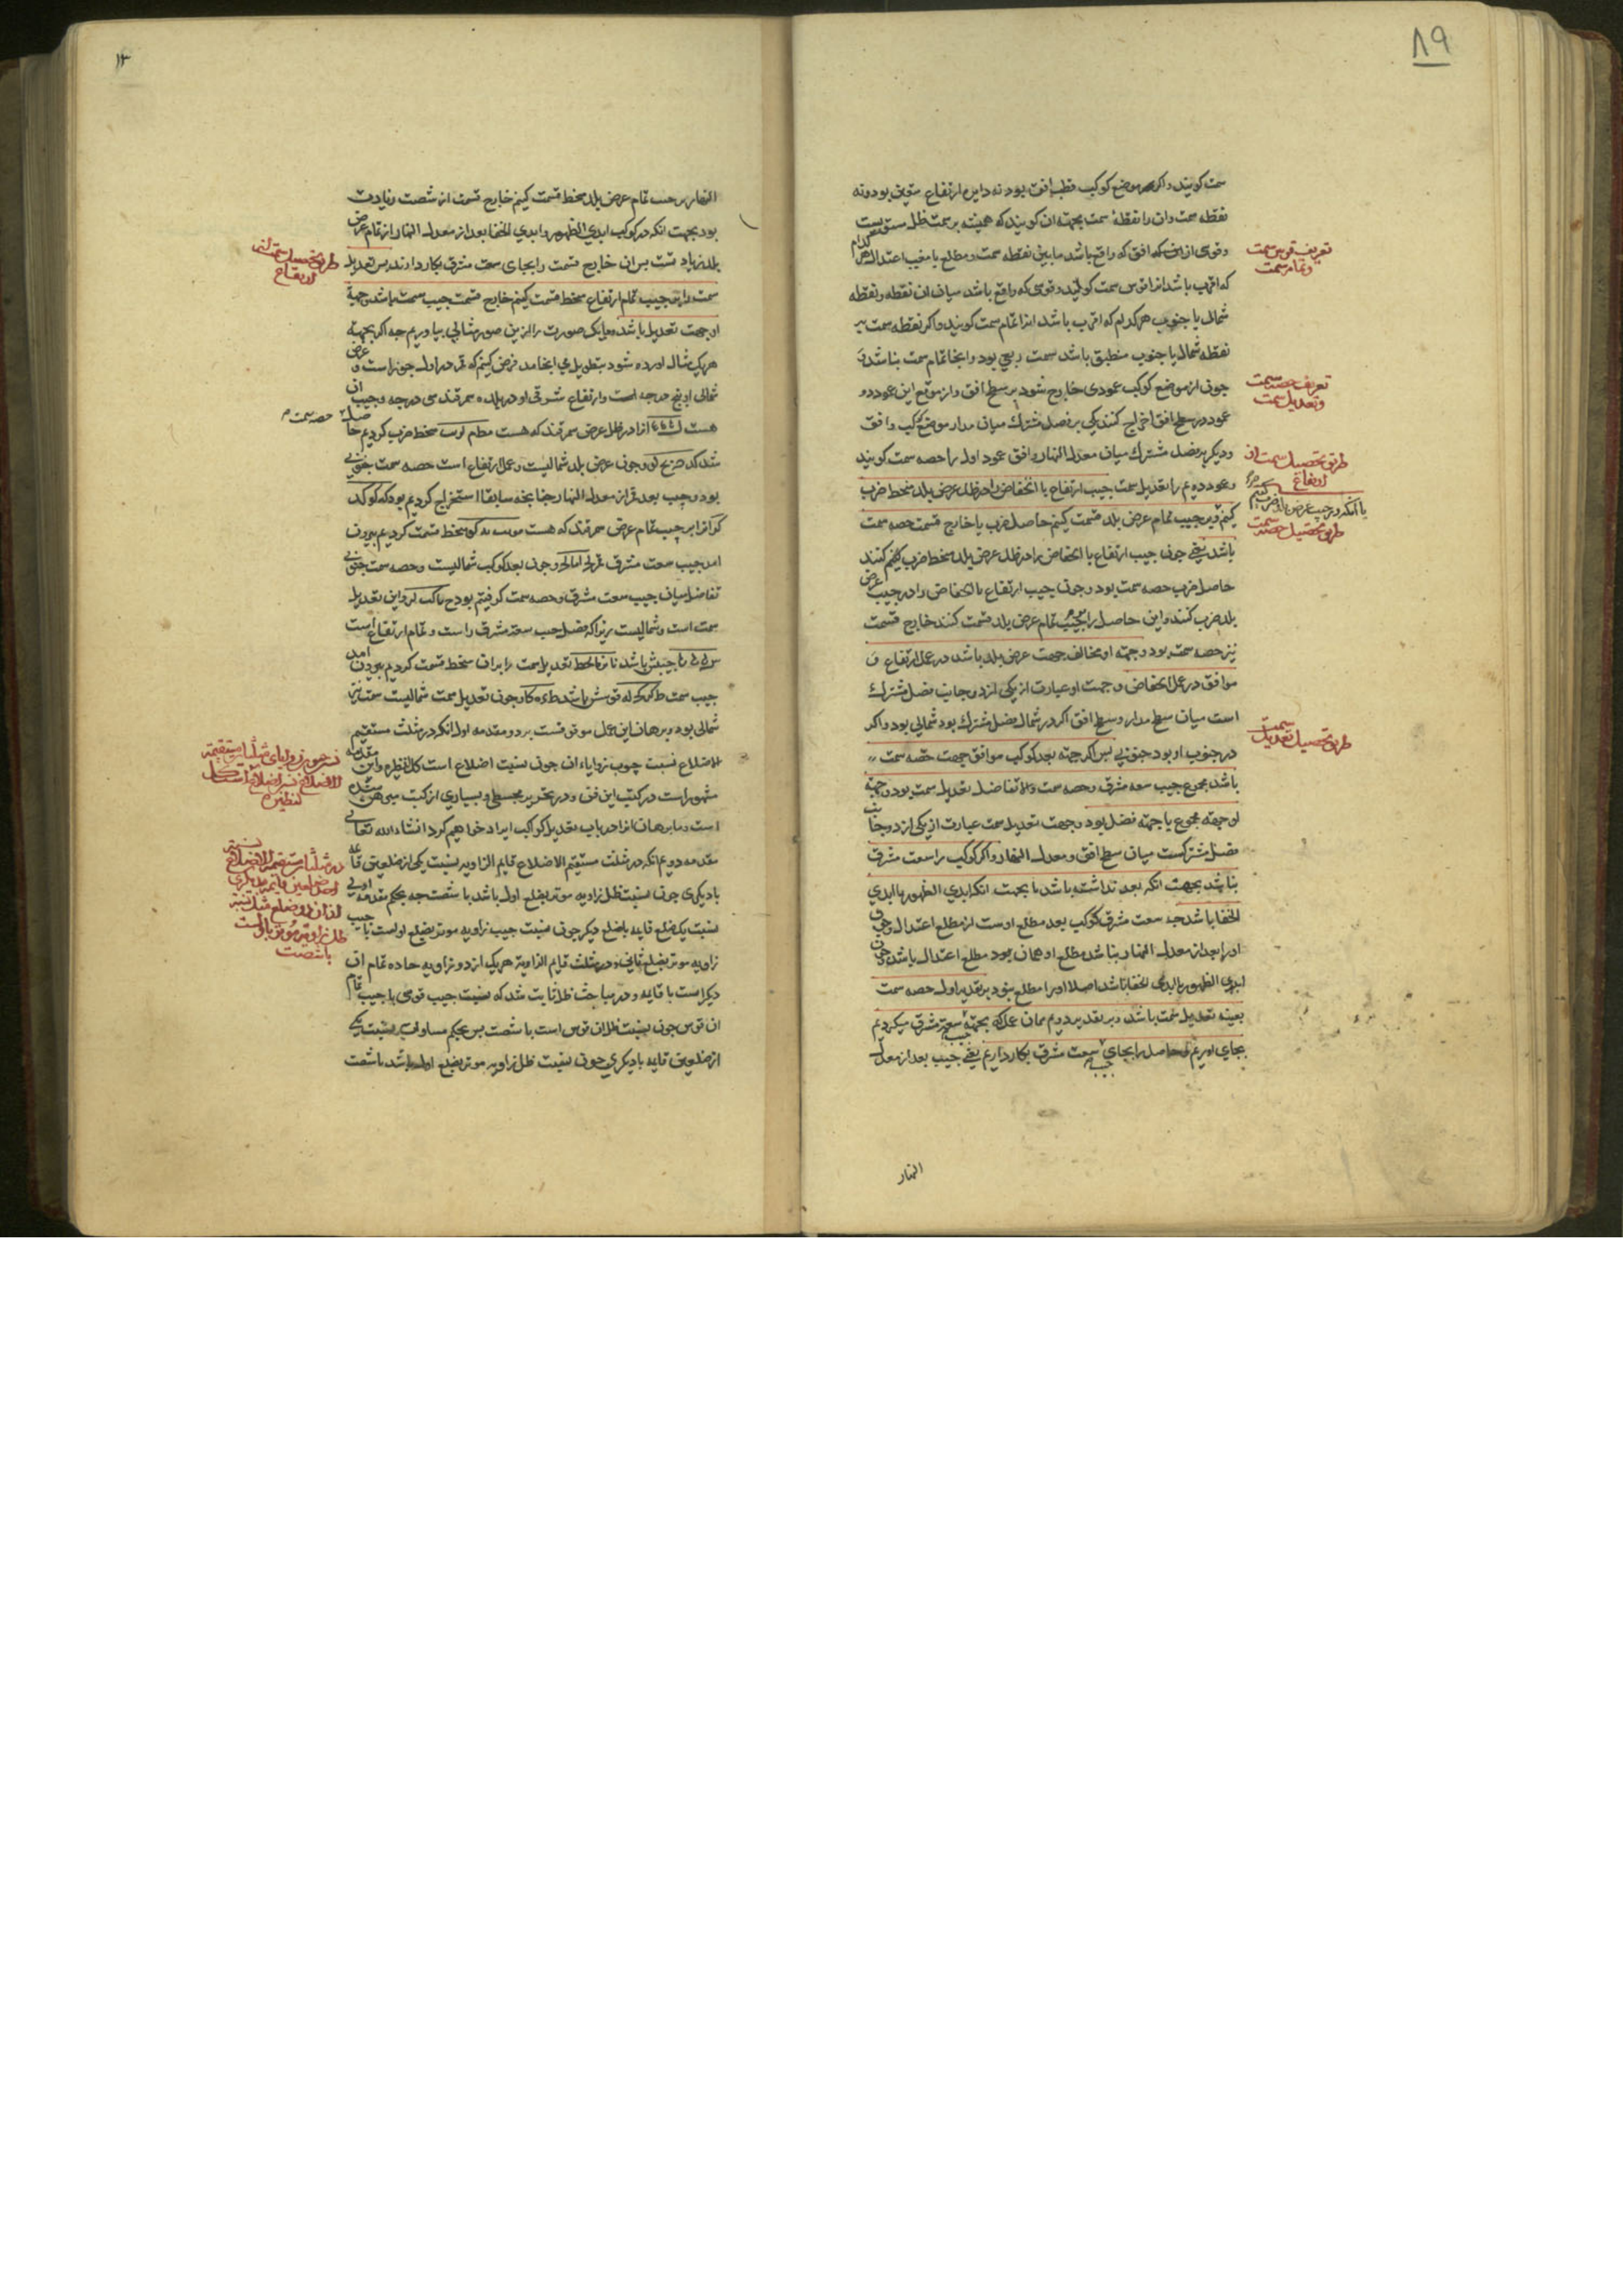 ۸۹
سمت کویند و اکر موضع کوکب قطب افق بود نه دایره ارتفاع متعین بود و نه
نقطه سمت و ان را نقطهٔ سمت بجهته ان کویند که همیشه بر سمت ظل
و قوسی از افق که واقع باشد ما بین نقطه سمت و مطلع یا مغیب اعتدال هر کدام
که اقرب باشد انرا قوس سمت کویند و قوسی که واقع باشد میان ان نقطه و نقطه
شمال یا جنوب هر کدام که اقرب باشد انرا تمام سمت کویند و اکر نقطه سمت بر
نقطه شمال یا جنوب منطبق باشد سمت ربعی بود و انجا تمام سمت نباشد و
چون از موضع کوکب عمودی خارج شود بر سطح افق و از موقع این عمود دو
عمود در سطح افق اخراج کنند یکی بر فصل مشترك میان مدار موضع کوکب و افق
و دیکر بر فصل مشترك میان معدل النهار و افق عمود اول را حصه سمت کویند
و عمود دویم را تعدیل سمت جیب ارتفاع یا انخفاض را در ظل عرض بلد منحط ضرب
کنیم و بر جیب تمام عرض بلد قسمت کنیم حاصل ضرب یا خارج قسمت حصه سمت
باشد یعنی چون جیب ارتفاع یا انخفاض را در ظل عرض بلد منحط ضرب کنند
حاصل ضرب حصه سمت بود و چون جیب ارتفاع یا انخفاض را در جیب عرض
بلد ضرب کنند و این حاصل را بر جیب تمام عرض بلد قسمت کنند خارج قسمت
نیز حصه سمت بود و جهة او مخالف جهت عرض بلد باشد در عمل ارتفاع و
موافق در عمل انخفاض و جهت او عبارت از یکی از دو جانب فصل مشترك
است میان سطح مدار و سطح افق اکر در شمال فصل مشترك بود شمالی بود و اکر
در جنوب او بود جنوبی پس اکر جهة بعد کوکب موافق جهت حصه سمت
باشد مجموع جیب سعه مشرق و حصه سمت و الا تفاضل تعدیل سمت بود و جهة
او جهته مجموع یا جهته فضل بود و جهت تعدیل سمت عبارت از یکی از دو جانب
فصل مشترکست میان سطح افق و معدل النهار و اکر کوکب را سعت مشرق
نباشد بجهت انکه بعد نداشته باشد یا بجهت انکه ابدی الظهور یا ابدی
الخفا باشد چه سعت مشرق کوکب بعد مطلع اوست از مطلع اعتدال و چون
او را بعد از معدل النهار نباشد مطلع او همان بود مطلع اعتدال باشد و چون
ابدی الظهور یا ابدی الخفا باشد اصلا او را مطلع نبود بر تقدیر اول حصه سمت
بعینه تعدیل سمت باشد و بر تقدیر دویم همان عمل که بجهة جیب سعة مشرق میکردیم
بجای اوریم و حاصل را بجای جیب سعت مشرق بکار داریم یعنی جیب بعد از معدل
النهار
تعریف قوس سمت
و تمام سمت
تعریف حصه سمت
و تعدیل سمت
طریق تحصیل سمت از
ارتفاع
طریق تحصیل حصه سمت
طریق تحصیل تعدیل سمت
۱۳
النهار بر جیب تمام عرض بلد منحط قسمت کنیم خارج قسمت از شصت زیادت
بود بجهت انکه در کوکب ابدی الظهور و ابدی الخفا بعد از معدل النهار از تمام عرض
بلد زیادتست پس ان خارج قسمت را بجای سعت مشرق بکار دارند پس تعدیل
سمت را بر جیب تمام ارتفاع منحط قسمت کنیم خارج قسمت جیب سمت باشد و جهة
او جهت تعدیل باشد و ما یک صورت را ازین صور مثالی بیاوریم چه اکر بجهته
هر یک مثال اورده شود بتطویل می انجامد فرض کنیم که قمر در اول جوزاست و عرض
شمالی او پنج درجه است و ارتفاع شرقی او در بلده سمرقند سی درجه و جیب ان
هست انرا در ظل عرض سمرقند که هست منحط ضرب کردیم حاصل
شد و چون عرض بلد شمالیست و عمل ارتفاع است حصه سمت جنوبی
بود و جیب بعد قمر از معدل النهار چنانچه سابقا استخراج کردیم بود
انرا بر جیب تمام عرض سمرقند که هست منحط قسمت کردیم بیرون
امد جیب سعت مشرق و چون بعد کوکب شمالیست و حصه سمت جنوبی
تفاضل میان جیب سعت مشرق و حصه سمت کرفتیم بود و این تعدیل
سمت است و شمالیست زیرا که فضل جیب سعة مشرق راست و تمام ارتفاع است
جیبش باشد تعدیل سمت را بران منحط قسمت کردیم بیرون امد
جیب سمت قوسش باشد و چون تعدیل سمت شمالیست سمت نیز
شمالی بود و برهان این عمل موقوفست بر دو مقدمه اول انکه در مثلث مستقیم
الاضلاع نسبت جیوب زوایاء ان چون نسبت اضلاع است کل لنظیره و این مقدمه
مشهور است در کتب این فن و در تحریر مجسطی و بسیاری از کتب مبرهن شده
است و ما برهان انرا در باب تعدیل کواکب ایراد خواهیم کرد انشاء الله تعالی
مقدمه دویم انکه در مثلث مستقیم الاضلاع قایم الزاویه نسبت یکی از ضلعین قاعده
با دیکری چون نسبت ظل زاویه موتر بضلع اول باشد با شصت چه بحکم مقدمه اولی
نسبت یک ضلع قایمه با ضلع دیکر چون نسبت جیب زاویه موتر بضلع اولست با جیب
زاویه موتر بضلع ثانی و در مثلث قایم الزاویة هر یک از دو زاویه حاده تمام ان
دیکر است با قایمه و در مباحث ظل ثابت شد که نسبت جیب قوسی با جیب تمام
ان قوس چون نسبت ظل ان قوس است با شصت پس بحکم مساوات نسبت یکی
از ضلعین قایمه با دیکری چون نسبت ظل زاویه موتر بضلع اول باشد با شصت
طریق تحصیل سمت از
ارتفاع
حصه سمت